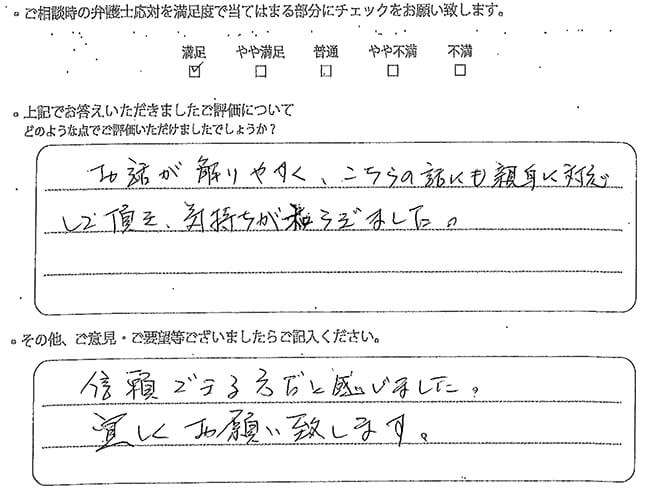 。ご相談時の弁護士応対を満足度で当てはまる部分にチェックをお願い致します。
満足 やや満足 普通 やや不満 不満
☑ ☐ ☐ ☐ ☐
。上記でお答えいただきましたご評価について
どのような点でご評価いただけましたでしょうか?
お話が解りやすく、こちらの話にも親身に対応
して頂き、気持ちが和らぎました。
。その他、ご意見・ご要望等ございましたらご記入ください。
信頼できる方だと感じました。
宜しくお願い致します。